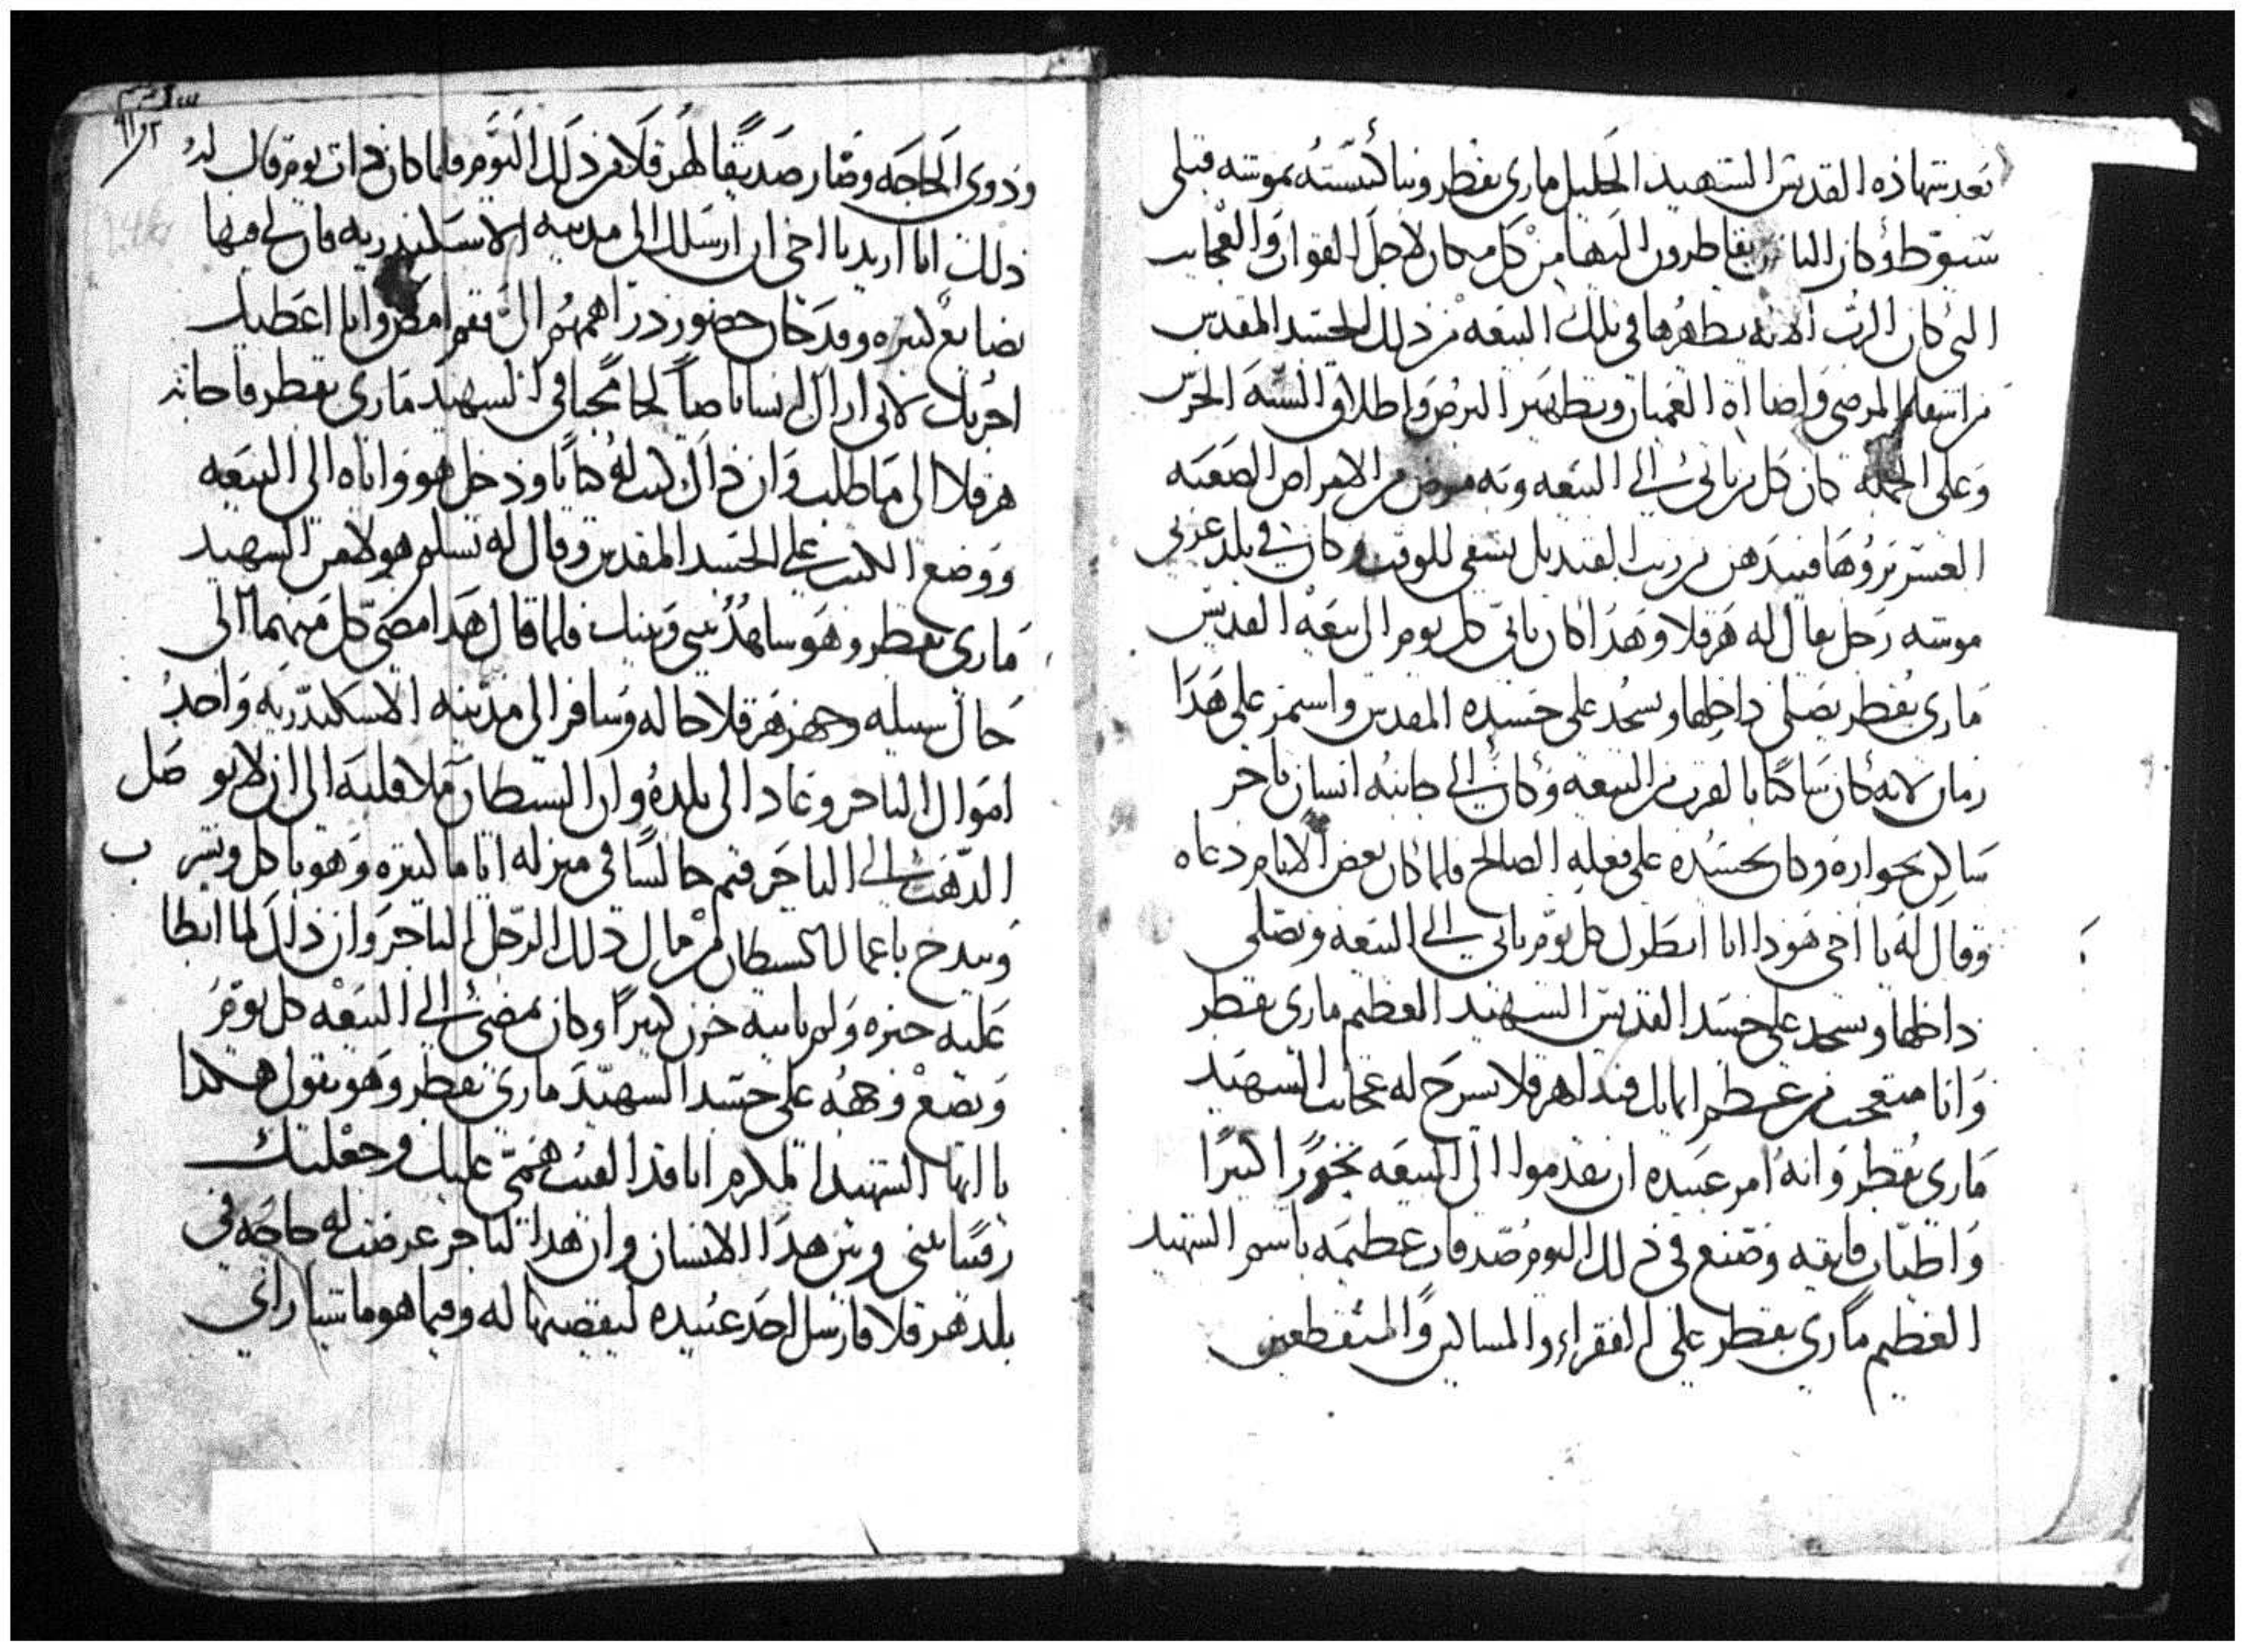 بعد شهادة القديس الشهيد الجليل ماري بقطر وبنا كنيسته بموشه قبلي
سيوط وكان الناس يتقاطرون اليها من كل مكان لاجل القوات والعجايب
التي كان الرب الاله يظهرها في تلك البيعه من ذلك الجسد المقدس
من اشفا المرضي واضااة العميان وتطهير البرص واطلاق السنة الخرس
وعلى الجملة كان كل من ياتي الي البيعه وبه مرض من الامراض الصعبه
العسر بروها فيندهن من زيت القنديل يشفي للوقت وكان في بلد غربي
موشه رجل يقال له هرقلا وهذا كان ياتي كل يوم الى بيعة القديس
ماري بقطر يصلي داخلها ويسجد على جسده المقدس واستمر على هذا
زمان لانه كان ساكنا بالقرب من البيعه وكان الي جانبه انسان تاجر
ساكن بجواره وكان يحسده على فعله الصالح فلما كان بعض الايام دعاه
وقال له يا اخي هوذا انا انظرك كل يوم تاتي الي البيعه وتصلي
داخلها وتسجد على جسد القديس الشهيد العظيم ماري بقطر
وانا متعجب من عظم ايمانك فبدا هرقلا يشرح له عجايب الشهيد
ماري بقطر وانه امر عبيده ان يقدموا الى البيعه بخورا كثيرا
واطياب فايقه وصنع في ذلك اليوم صدقات عظيمه باسم الشهيد
العظيم ماري بقطر على الفقراء والمساكين والمنقطعين
وذوي الحاجه وصار صديقا لهرقلا من ذلك اليوم فلما كان ذات يوم قال له
ذلك انا اريد يا اخي ان ارسلك الى مدينه الاسكندريه فان لي فيها
بضايع كثيره وقد حان حضور دراهمهم الي فقم امض وانا اعطيك
اجرتك لاني اراك انسانا صالحا محبا في الشهيد ماري بقطر فاجابه
هرقلا الى ما طلب وان ذاك كتب له كتابا ودخل هو واياه الى البيعه
ووضع الكتب علي الجسد المقدس وقال له تسلم هولا من الشهيد
ماري بقطر وهو ساهد بيني وبينك فلما قال هذا مضي كل منهما الى
حال سبيله وجهز هرقلا حاله وسافر الى مدينه الاسكندريه واخد
اموال التاجر وعاد الى بلده وان الشيطان ملا قلبه الى ان لا يوصل
الذهب الي التاجر فتم جالسا في منزله اياما كثيره وهو ياكل ويشرب
ويبدخ باعمال الشيطان من مال ذلك الرجل التاجر وان ذاك لما ابطا
عليه خبره ولم ياتيه حزن كثيرا وكان يمضي الي البيعه كل يوم
ويضع وجهه على جسد الشهيد ماري بقطر وهو يقول هكذا
يا ايها الشهيد المكرم انا قد القيت همي عليك وجعلتك
رقيبا بيني وبين هذا الانسان وان هذا التاجر عرضت له حاجه في
بلد هرقلا فارسل احد عبيده ليقضيها له وفيما هو ماشيا راي